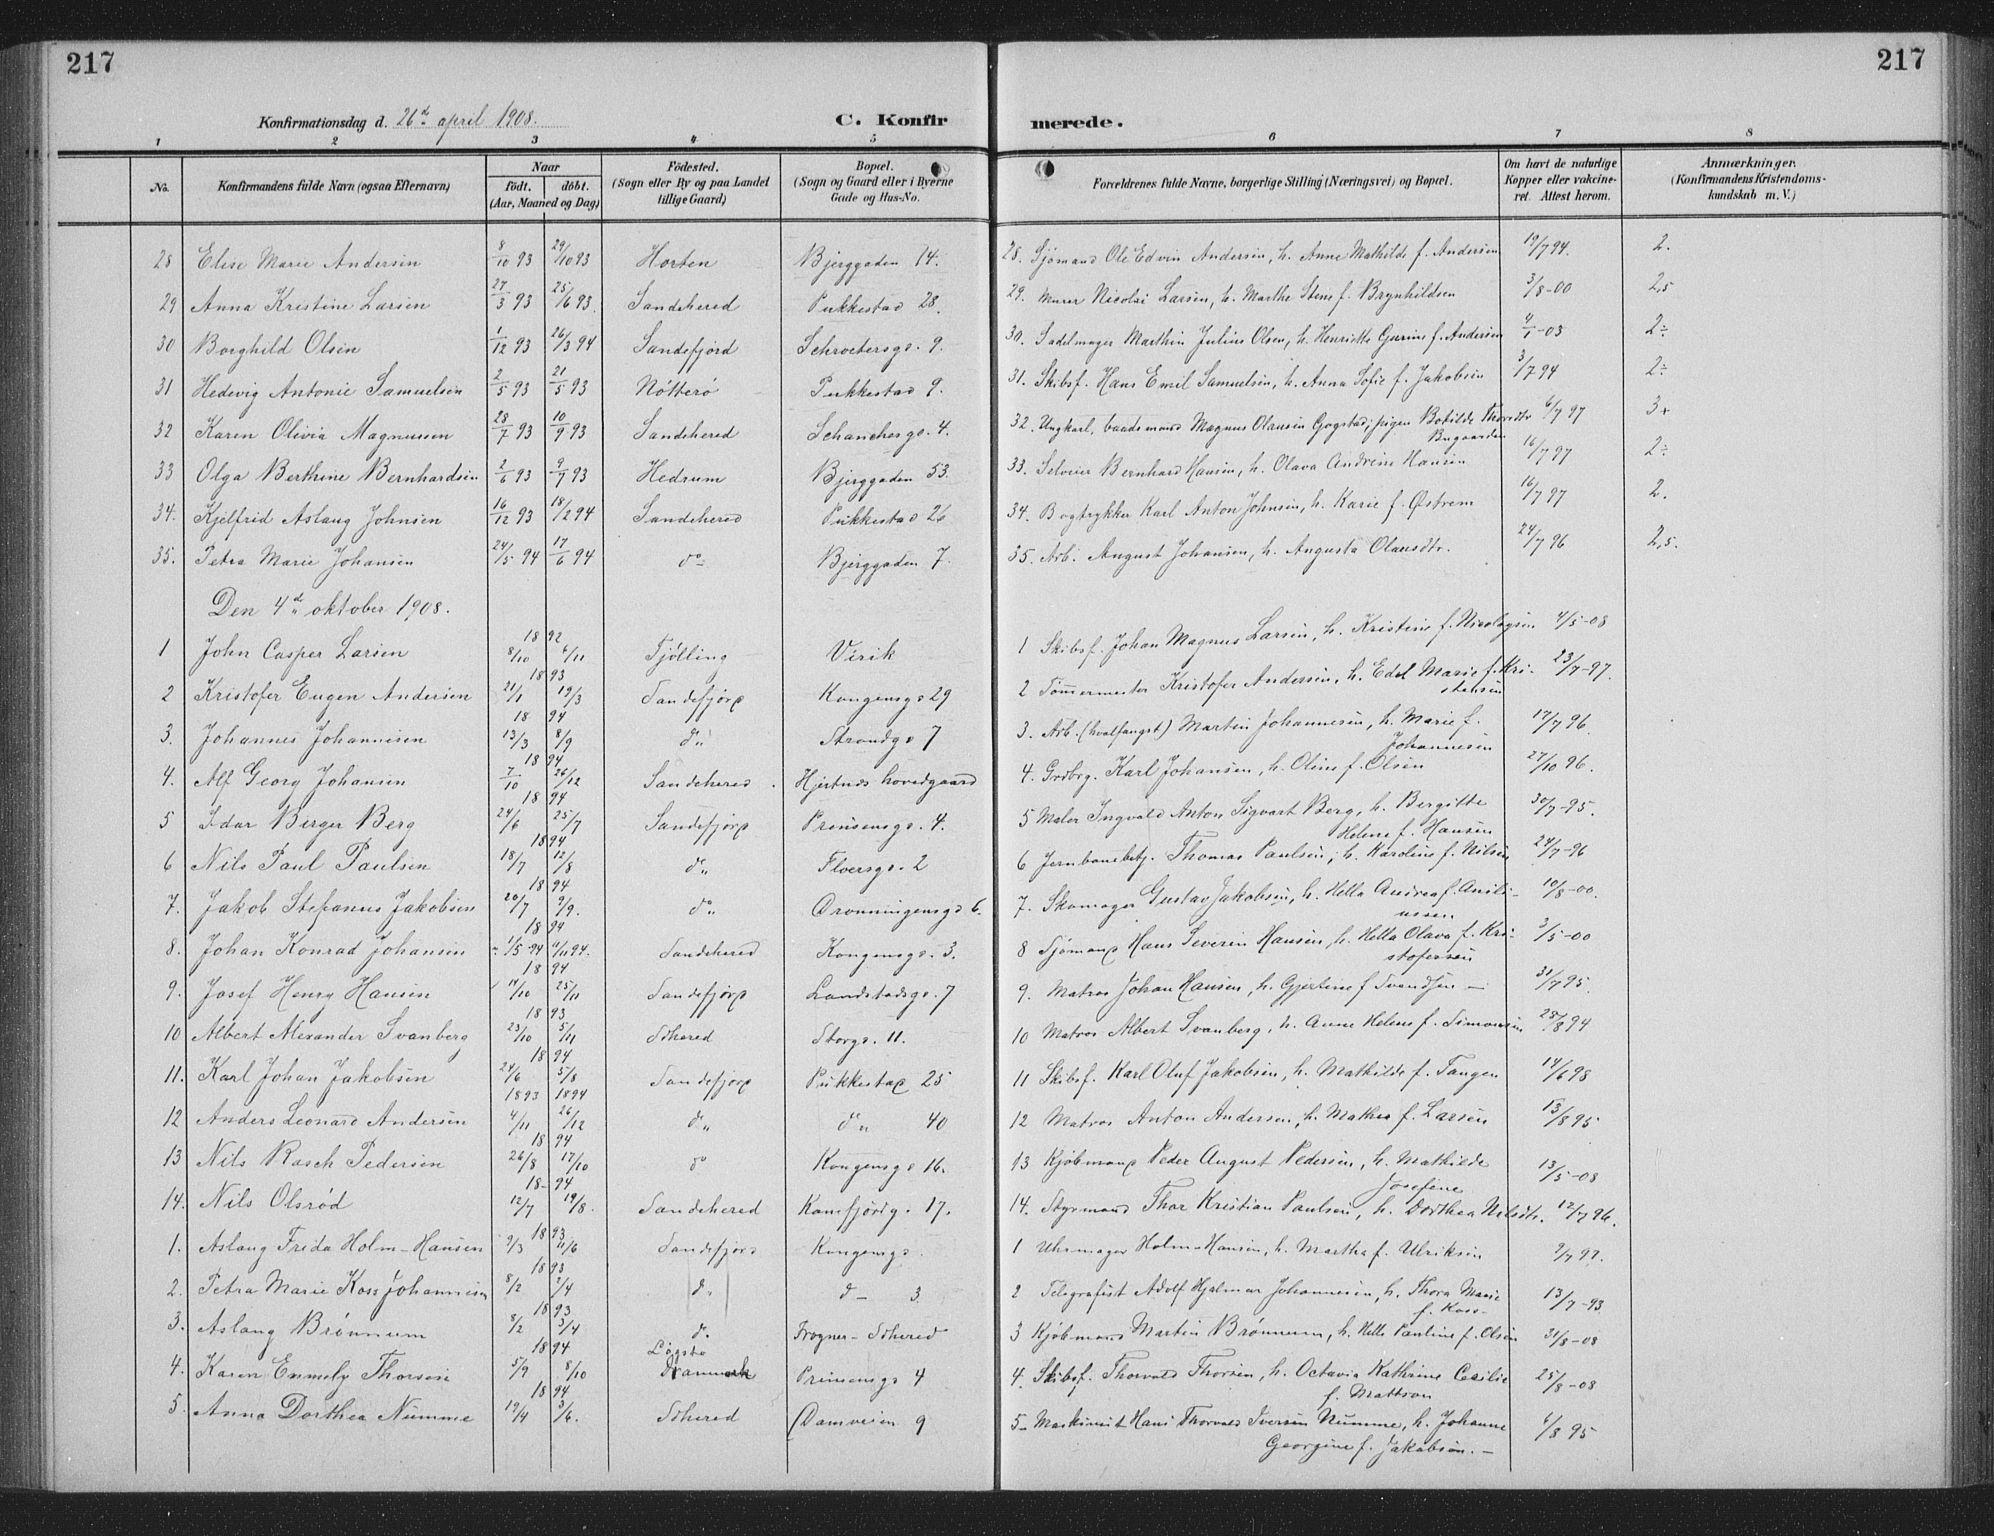 217
217
Konfirmationsdag d. 26de april 1908.
C. Konfir
merede.
1 2 3 4 5 6 7 8
No. Konfirmandens fulde Navn (ogsaa Efternavn) Naar födt. döbt. (Aar, Maaned og Dag) Födested. (Sogn eller By og paa Landet tillige Gaard) Bopæl. (Sogn og Gaard eller i Byerne Gade og Hus-No. Forældrenes fulde Navne, borgerlige Stilling (Næringsvei) og Bopæl. Om havt de naturlige Kopper eller vakcineret. Attest herom. Anmærkninger. (Konfirmandens Kristendomskundskab m. V.)
28 Elise Marie Andersen 8/10 93 29/10 93 Horten Bjerggaden 14. 28. Sjömand Ole Edvin Andersen, h. Anne Mathilde f. Andersen 19/7 94. 2.
29 Anna Kristine Larsen 27/3 93 25/6 93. Sandehered Pukkestad 28. 29. Murer Nicolai Larsen, h. Marthe Stene f. Brynhildsen 3/8-00 2,5
30 Borghild Olsen 1/12 93 26/3 94 Sandefjord Schroetersg. 9. 30. Sadelmager Marthin Julius Olsen, h. Henriette Gurine f. Andersen 9/1-03 2÷
31 Hedevig Antonie Samuelsen 2/5 93 21/5 93 Nötterö Pukkestad 9. 31. Skibsf. Hans Emil Samuelsen, h. Anna Sofie f. Jakobsen 3/7 94 2÷
32 Karen Olivia Magnussen 28/7 93 10/9 93 Sandehered Schanchesg. 4. 32. Ungkarl, baadsmand Magnus Olausen Gogstad, pigen Botilde Thorsdtr Bugaarden 6/7 97 3+
33 Olga Berthine Bernhardsen 2/6 93 9/7 93 Hedrum Bjerggaden 53. 33. Selveier Bernhard Hansen, h. Olava Andrine Hansen 16/7 97 2÷
34. Kjelfrid Aslaug Johnsen 16/12 93 18/2 94 Sandehered Pukkestad 26 34. Bogtrykker Karl Anton Johnsen, h. Karie f. Østrem 16/7 97 2.
35. Petra Marie Johansen 24/5 94 17/6 94 do Bjerggaden 7. 35. Arb. August Johansen, h. Augusta Olausdtr. 24/7 96 2,5.
Den 4de oktober 1908.
1 John Casper Larsen 1892 8/10 6/11 Tjölling Virik 1 Skibsf. Johan Magnus Larsen, h. Kristine f. Nicolaysen 4/5-08
2 Kristofer Eugen Andersen 1893 21/1 19/3 Sandefjord Kongensg. 29 2 Tömmermester Kristofer Andersen, h. Edel Marie f. Kristensen 23/7-97.
3. Johannes Johannesen 1894 13/3 8/9 do Strandg. 7 3. Arb. (hvalfangst) Martin Johannesen, h. Marie f. Johannesen 17/7 96.
4. Alf Georg Johansen 1894 7/10 26/12 Sandehered. Hjertnes hovedgaard 4. Grdbrg. Karl Johansen, h. Oline f. Olsen 27/10 96.
5 Idar Berger Berg 1894 24/6 25/7 Sandefjord Prinsensg. 4. 5 Maler Ingvald Anton Sigvart Berg, h. Bergitte Helene f. Hansen 30/7-95.
6 Nils Paul Paulsen 1894 18/7 12/8 do Floersg. 2 6 Jernbanebetj. Thomas Paulsen, h. Karoline f. Nilsen 24/7-96
7. Jakob Stefanus Jakobsen 1894 20/7 9/9. do Dronningensg. 6. 7. Skomager Gustav Jakobsen, h. Hella Andrea f. Aniliussen 10/8-00.
8. Johan Konrad Johansen 1894 1/5 94 11/11 94. Sandehered Kongensg. 3. 8 Sjömand Hans Severin Hansen, h. Hella Olava f. Kristofersen 2/5-00
9. Josef Henry Hansen 1894 14/10 25/11 Sandefjord Landstadsg. 7 9. Matros Johan Hansen, h. Gjertine f Svendsen — 31/7 95.
10 Albert Alexander Svanberg 1893 23/10 5/11 Sdhered Storg. 11. 10 Matros Albert Svanberg, h. Anne Helene f. Simonsen 28/8 94
11. Karl Johan Jakobsen 1894 24/6 5/8 Sandefjord Pukkestad 25 11 Skibsf. Karl Oluf Jakobsen, h. Mathilde f. Tangen 14/6 98
12 Anders Leonard Andersen 1893 1894 4/11 26/12 do do 40 12 Matros Anton Andersen, h. Mathea f. Larsen 13/8 95
13 Nils Rasch Pedersen 1894 26/8 17/10 do Kongensg. 16. 13 Kjöbmand Peder August Pedersen, h. Mathilde Josefine 13/5-08
14. Nils Olsröd 18-94 12/7 19/8. Sandehered Kamfjordg. 17. 14. Styrmand Thor Kristian Paulsen, h. Dorthea Nilsdtr. 12/7 96.
1. Aslaug Frida Holm-Hansen 1893 9/3 11/6 Sandefjord Kongensg. 1 Uhrmager Holm-Hansen, h. Martha f. Ulriksen 9/7 97.
2. Petra Marie Koss Johannesen 1893 8/2 2/4 do do — 3. 2 Telegrafist Adolf Hjalmar Johannesen, h. Thora Marie f. Koss— 13/7-93
3. Aslaug Brönnum 1893 8/2 3/4 do. Frogner-Sdhered 3 Kjöbmand Martin Brönnum, h. Helle Pauline f. Olsen 31/8-08
4. Karen Emmely Thorsen 1894 5/9 8/10 Lögstø Danmark Prinsensg 4 4. Skibsf. Thorvald Thorsen, h. Octavia Kathrine Cecilie f. Mattson 25/8-08
5. Anna Dorthea Numme 1894 19/4 3/6. Sdhered (Damveien 9 5- Maskinist Hans Thorvald Iversen Numme, h. Johanne Georgine f. Jakobsen. — 6/8 95